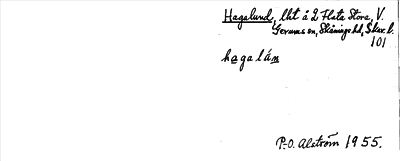 Hagalund, lht å 2 Flata Stora, V.
Gerums sn, Skånings hd, Skar. l.
101
hagalán
P-O. Alström 1955.